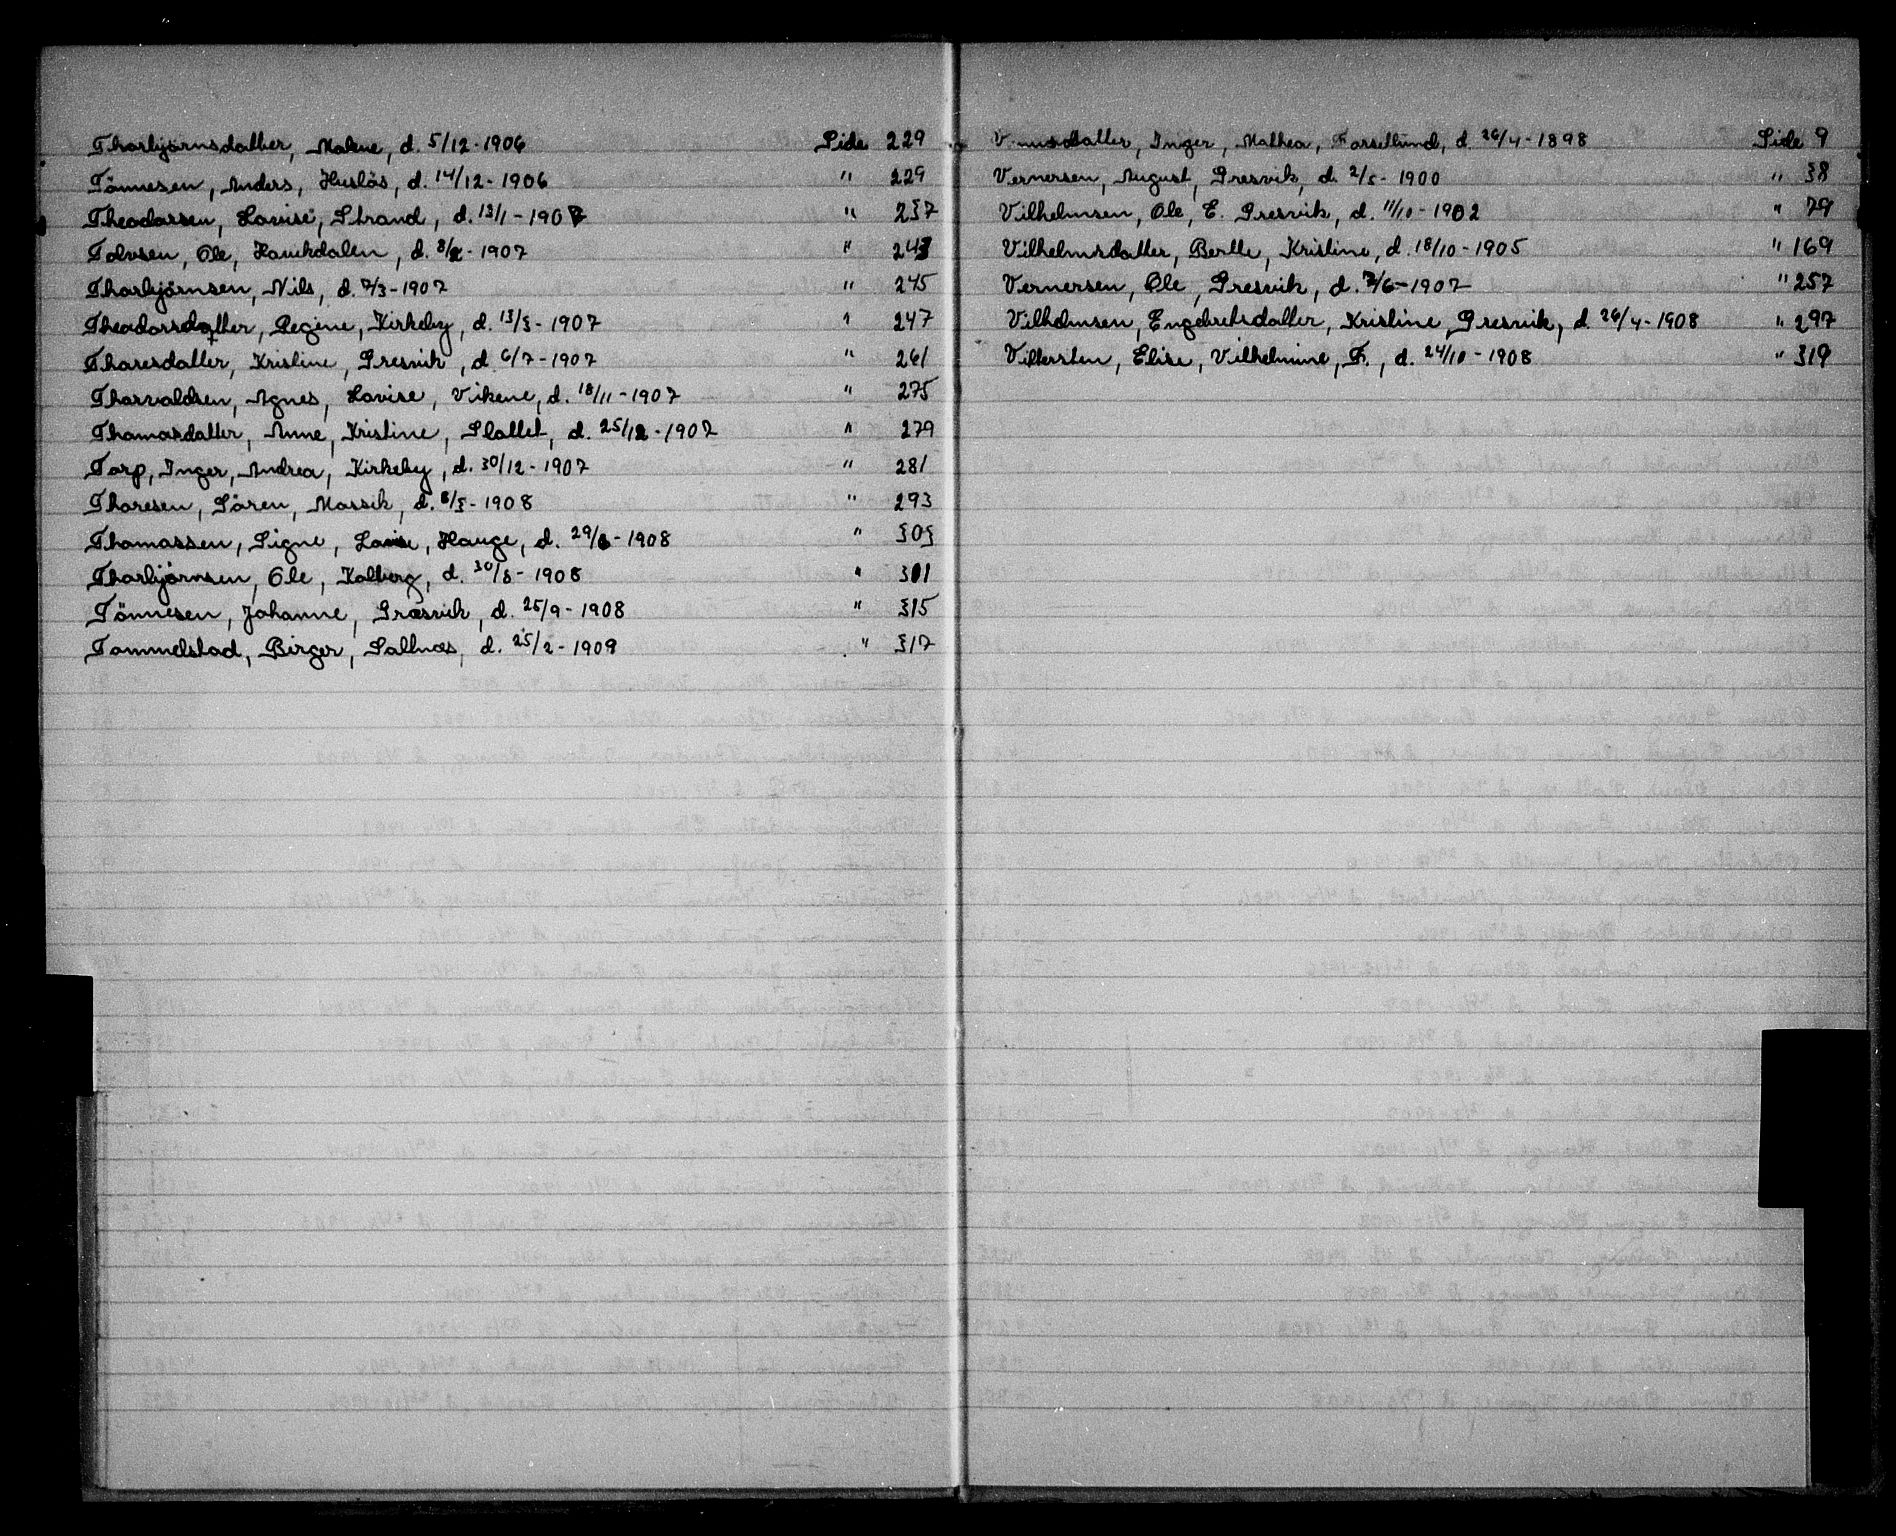 Thorbjörnsdatter, Malene, d. 5/12-1906 Side 229
Tönnesen, Anders, Huslös, d. 14/12-1906 " 229
Theodorsen, Lovise, Strand, d. 13/1-1907 " 237
Tolvsen, Ole, Haukdalen, d. 8/2-1907 " 243
Thorbjörnsen, Nils, d. 7/3-1907 " 245
Theodorsdatter, Regine, Kirkeby, d. 13/3-1907 " 247
Thoresdatter, Kristine, Gresvik, d. 6/7-1907 " 261
Thorvaldsen, Agnes, Lovise, Vikene, d. 18/11-1907 " 275
Thomasdatter, Anne, Kristine, Slottet, d. 25/12-1907 " 279
Torp, Inger, Andrea, Kirkeby, d. 30/12-1907 " 281
Thoresen, Sören, Mossik, d. 8/3-1908 " 293
Thomassen, Signe, Lovise, Hauge, d. 29/6-1908 " 303
Thorbjörnsen, Ole, Kolberg, d. 30/8-1908 " 301
Tönnesen, Johanne, Græsvik, d. 25/9-1908 " 315
Tommelstad, Birger, Saltnæs, d. 25/2-1909 " 317
Inger, Mathea, d. 26/4-1898 Side 9
Vernersen, August, Gresvik, d. 2/5-1900 " 38
Vilhelmsen, Ole, E. Gresvik, d. 11/10-1902 " 79
Vilhelmsdatter, Bertle, Kristine, d. 18/10-1905 " 169
Vernersen, Ole, Gresvik, d. 7/6-1907 " 257
Vilhelmsen, Engebretsdatter, Kristine, Gresvik, d. 26/4-1908 " 297
Vittersten, Elise, Vilhelmine, F., d. 24/10-1908 " 319